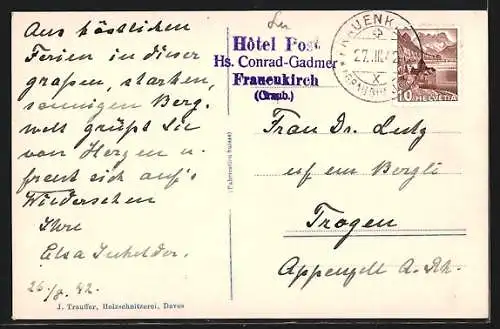 Aus köstlichen
Ferien in dieser
großen, starken,
sonnigen Berg-
welt grüßt Sie
von Herzen u.
freut sich auf's
Wiedersehen
Ihre
Elsa
26./3. 42.
J. Trauffer, Holzschnitzerei, Davos
Hôtel Post
Hs. Conrad-Gadmer
Frauenkirch
(Graub.)
FRAUENK
27. III. 42
10 HELVETIA
(Fabrication Suisse)
Frau Dr. Lutz
uf em Bergli
Trogen
Appenzell A. Rh.